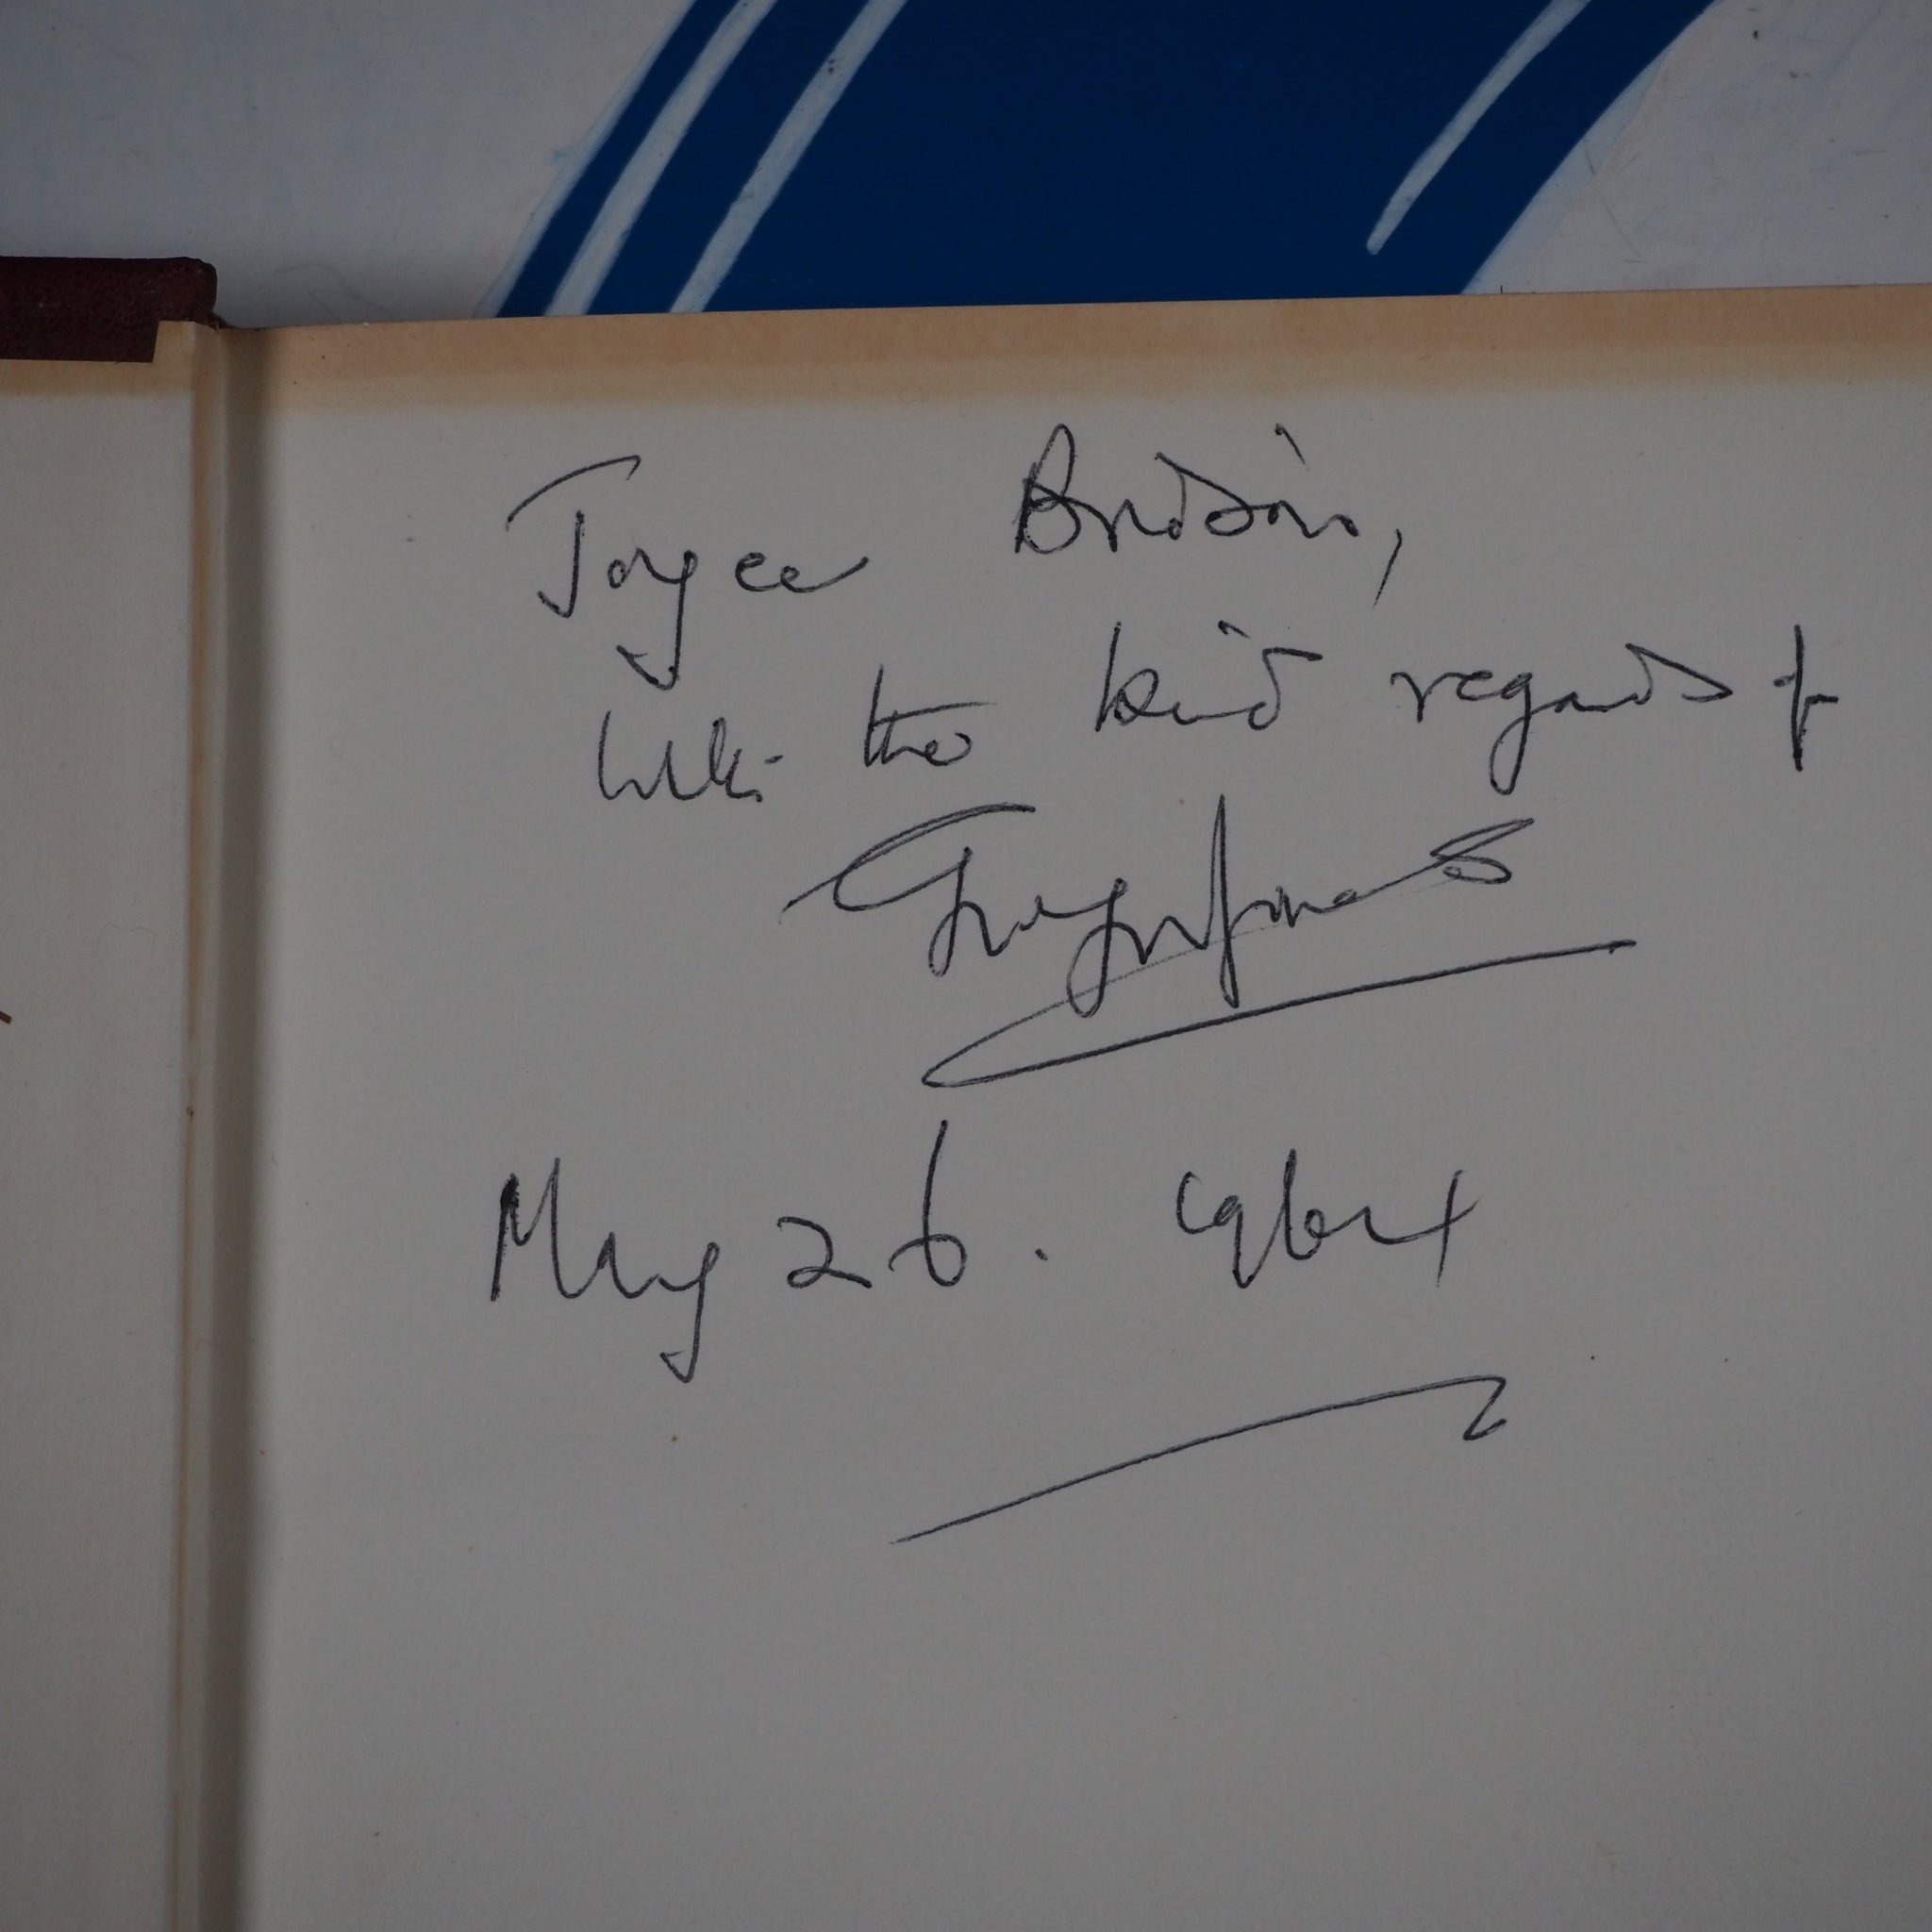 Joyce
with the kind regards of
May 26. 1964